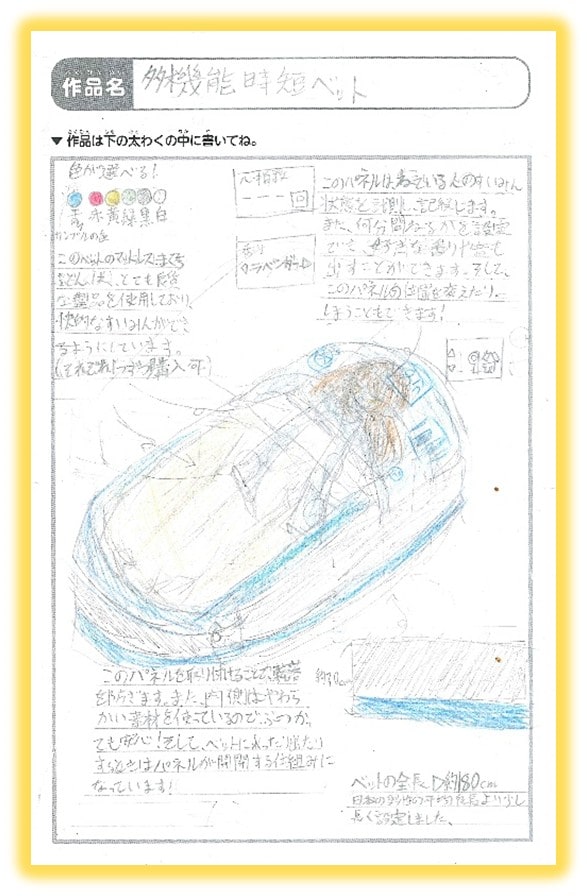 作品名
多機能時短ベット
▼作品は下の太わくの中に書いてね。
色が選べる!
青 赤 黄 緑 黒 白
サンプルの色
このベットのマットレス、まくら
な製品を使用しており、
快適なすいみんができ
るようにしています。
元柏粒
---回
香り
ラベンダー▷
このパネルはねている人のすいみん
状態を計測し、記録します。
また、何分間ねるかを設定
出すことができます。そして、
このパネルの位置を変えたり、
しまうこともできます!
このパネルを取り付けることで、騒音
を防ぎます。また、内側はやわら
かい素材を使っているのでぶつかっ
ても安心!そして、ベットに入ったり出たり
するときはパネルが開閉する仕組みに
なっています!
約70cm
ベットの全長▷約180cm
日本の男性の平均身長より少し
長く設定しました。